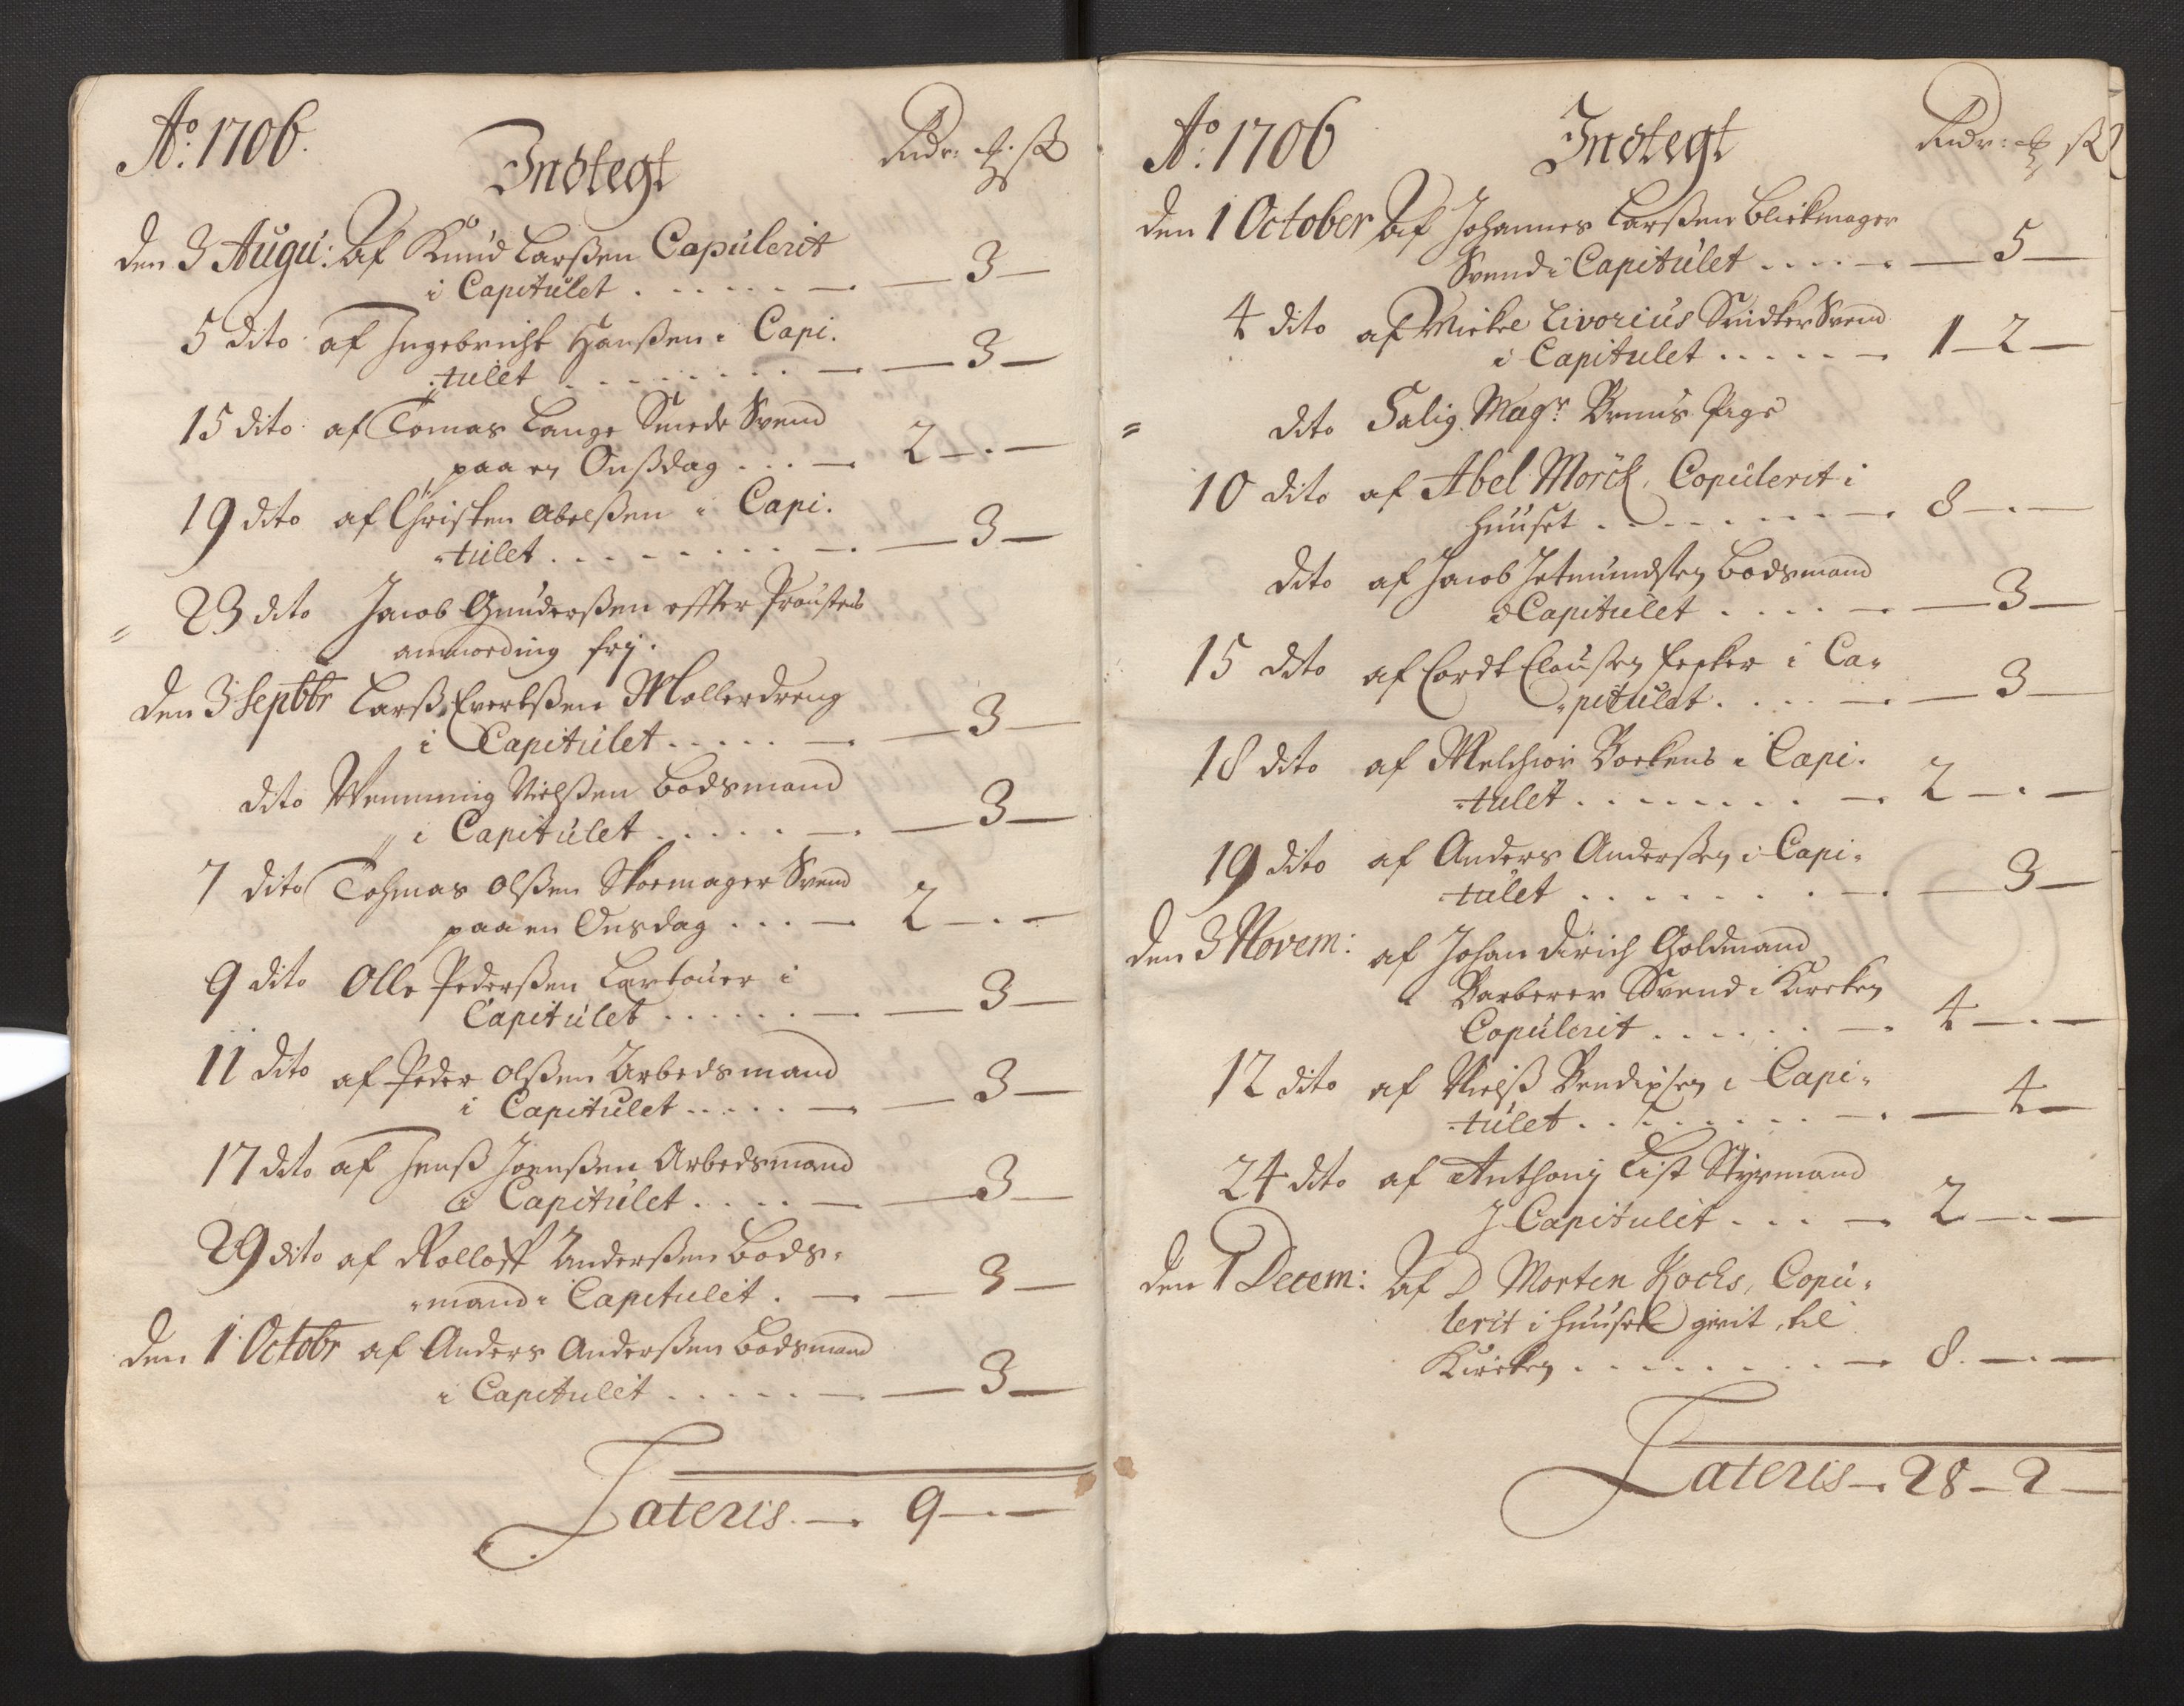 Ao: 1706.
Indtegt
Rdr: ß
den 3 Augu: af Knud Larßen Capulerit
i Capitulet . . . . . . — 3 —
5 dito af Ingebricht Hanßen i Capi.
tulet . . . . . . . . — 3 —
15 dito af Tomas Lange Smede Svend
paa en Onßdag . . . — 2 — . —
19 dito af Christen Abelßen i Capi.
tulet . . . . . . . . — 3 —
23 dito Jacob Gunderßen effter Proustens
anmording frj.
den 3 Septbr Larß Evertßen Mollerdreng
i Capitulet . . . . . — 3 —
dito Wemming Nielßen Bodsmand
i Capitulet . . . . . — 3 —
7 dito Tohmas Olßen Skoemager Svend
paa en Onsdag . . . — 2 — . —
9 dito Olle Pederßen i
Capitulet . . . . . . — 3 —
11 dito af Peder Olßen Arbedsmand
i Capitulet . . . . . — 3 —
17 dito af Jenß Joenßen Arbedsmand
i Capitulet . . . . — 3 —
29 dito af Rolloff Anderßen Bods-
mand i Capitulet . — 3 —
den 1 Octobr af Anders Anderßen Bodsmand
i Capitulet . . . . . — 3 —
Lateris — 9 — . —
Ao: 1706
Indtegt
Rdr: ß
den 1 October af Johannes Larßen Blickmager
Svend i Capitulet . . . . — 5 —
4 dito af Mickel Livorius Snidker Svend
i Capitulet . . . . . — 1 — 2 —
dito Salig Magr. Pige
10 dito af Abel Mörch, Copulerit i
huuset . . . . . . . . — 8 — . —
dito af Jacob Jetmundsen Bodsmand
i Capitulet . . . . — 3 —
15 dito af Cordt Clousen i Ca-
pitulet . . . . — 3 —
18 dito af Melchior i Capi-
tulet . . . . . . . — 2 — . —
19 dito af Anders Anderßen i Capi-
tulet . . . . . . . — 3 —
den 3 Novem: af Johan Dirich Goldmand
Barberer Svend i Kircken
Copulerit . . . . . . — 4 — . —
12 dito af Nielß Bendixsen i Capi-
tulet . . . . . . . — 4 —
24 dito af Anthonj List Styrmand
J Capitulet . . . — 2 — . —
den 1 Decem: af D Morten Kochs, Copu-
lerit i huuset givit til
Kircken . . . . . . . . — 8 . — . —
Lateris — 28 — 2 —